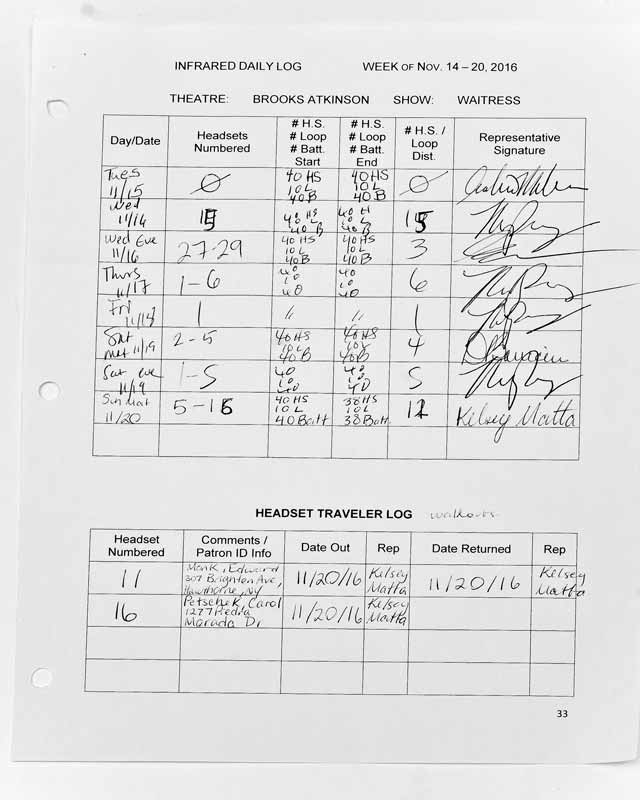 INFRARED DAILY LOG WEEK OF NOV. 14 – 20, 2016
THEATRE: BROOKS ATKINSON SHOW: WAITRESS
Day/Date Headsets Numbered # H.S. # Loop # Batt. Start # H.S. # Loop # Batt. End # H.S. / Loop Dist. Representative Signature
Tues 11/15 Ø 40 HS 10 L 40 B 40 HS 10 L 40 B Ø
Wed 40 HS 40 B 40 H 40 B
Wed Eve 11/16 27-29 40 HS 10 L 40 B 40 HS 10 L 40 B 3
Thurs 11/17 1-6 40 10 40 40 10 40 6
Fri 11/18 1 " " 1
Sat Mat 11/19 2-5 40 HS 10 L 40 B 40 HS 10 L 40 B 4
Sat eve 11/19 1-5 40 10 40 40 10 40 5
Sun Mat 11/20 5-16 40 HS 10 L 40 Batt 38 HS 10 L 38 Batt 12 Kelsey Matta
HEADSET TRAVELER LOG walkouts
Headset Numbered Comments / Patron ID Info Date Out Rep Date Returned Rep
11 Monk, Edward 307 Brighton Ave, Hawthorne, NY 11/20/16 Kelsey Matta 11/20/16 Kelsey Matta
16 Petschek, Carol 1277 Piedra Morada Dr 11/20/16 Kelsey Matta
33